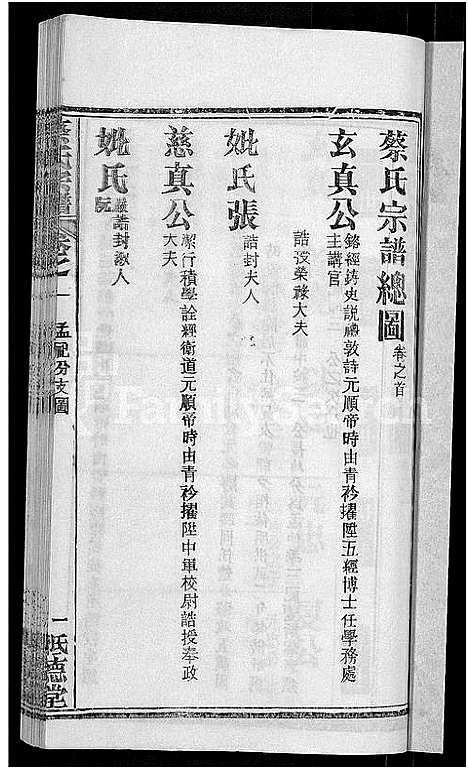 蔡氏宗譜總圖 卷之首
玄真公 鎔經鑄史説禮敦詩元順帝時由青衿擢陞五經博士任學務處
主講官
誥授榮祿大夫
妣氏張 誥封夫人
慈真公 潔行積學詮經衛道元順帝時由青衿擢陞中軍校尉誥授奉政
大夫
妣氏 阮 誥封淑人
蔡氏宗譜 卷之一 孟配分支圖 一 祇德堂
FamilySearch